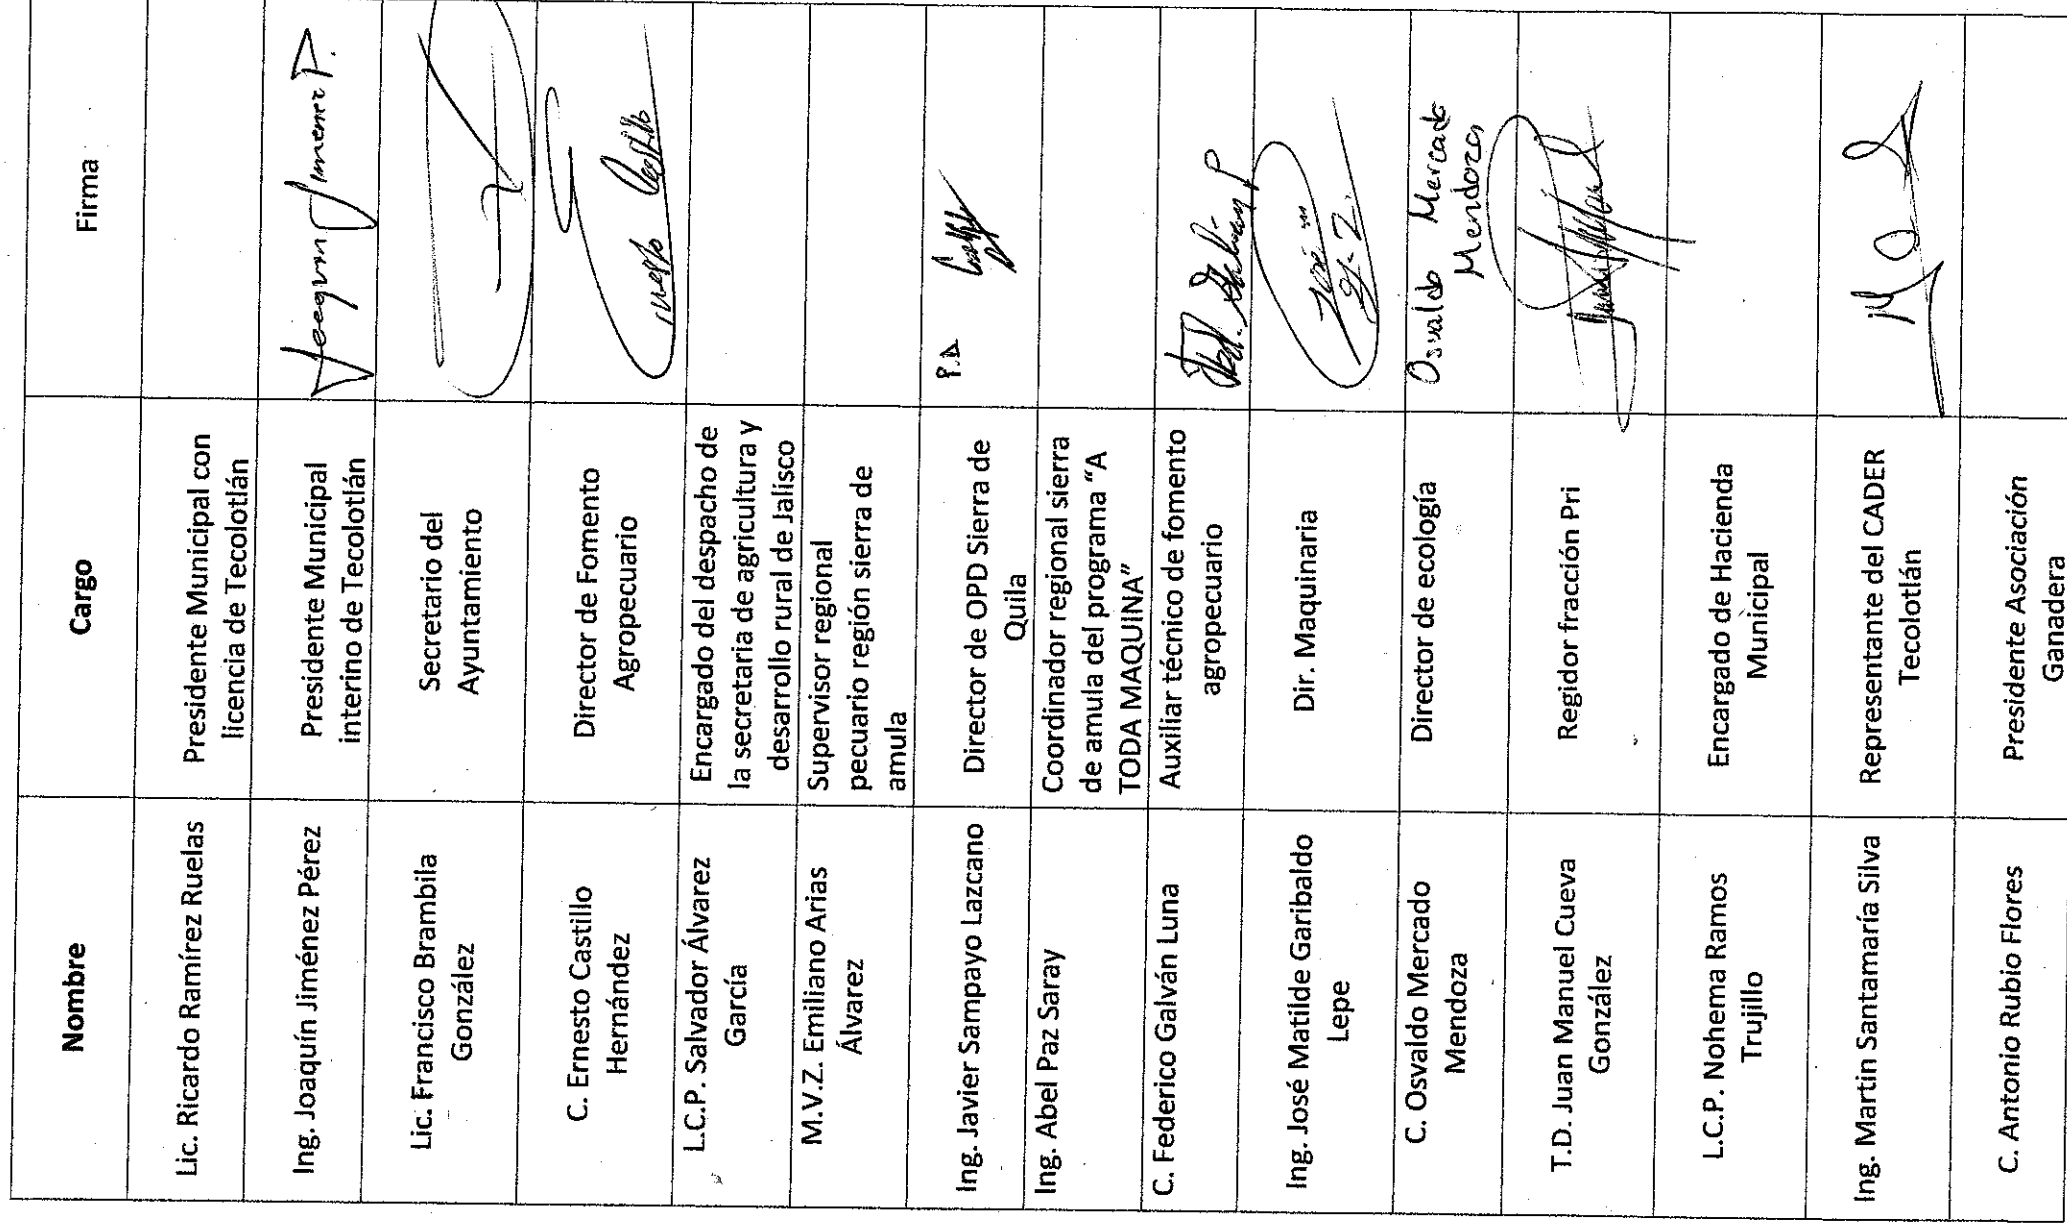 Nombre Cargo Firma
Lic. Ricardo Ramírez Ruelas
Presidente Municipal con
licencia de Tecolotlán
Ing. Joaquín Jiménez Pérez
Presidente Municipal
interino de Tecolotlán
Joaquin Jimenez P.
Lic. Francisco Brambila
González
Secretario del
Ayuntamiento
C. Ernesto Castillo
Hernández
Director de Fomento
Agropecuario
L.C.P. Salvador Álvarez
García
Encargado del despacho de
la secretaria de agricultura y
desarrollo rural de Jalisco
M.V.Z. Emiliano Arias
Álvarez
Supervisor regional
pecuario región sierra de
amula
Ing. Javier Sampayo Lazcano
Director de OPD Sierra de
Quila
P.A
Ing. Abel Paz Saray
Coordinador regional sierra
de amula del programa “A
TODA MAQUINA”
C. Federico Galván Luna
Auxiliar técnico de fomento
agropecuario
Ing. José Matilde Garibaldo
Lepe
Dir. Maquinaria
José m
C. Osvaldo Mercado
Mendoza
Director de ecología
Osvaldo Mercado
Mendoza
T.D. Juan Manuel Cueva
González
Regidor fracción Pri
L.C.P. Nohema Ramos
Trujillo
Encargado de Hacienda
Municipal
Ing. Martin Santamaría Silva
Representante del CADER
Tecolotlán
C. Antonio Rubio Flores
Presidente Asociación
Ganadera